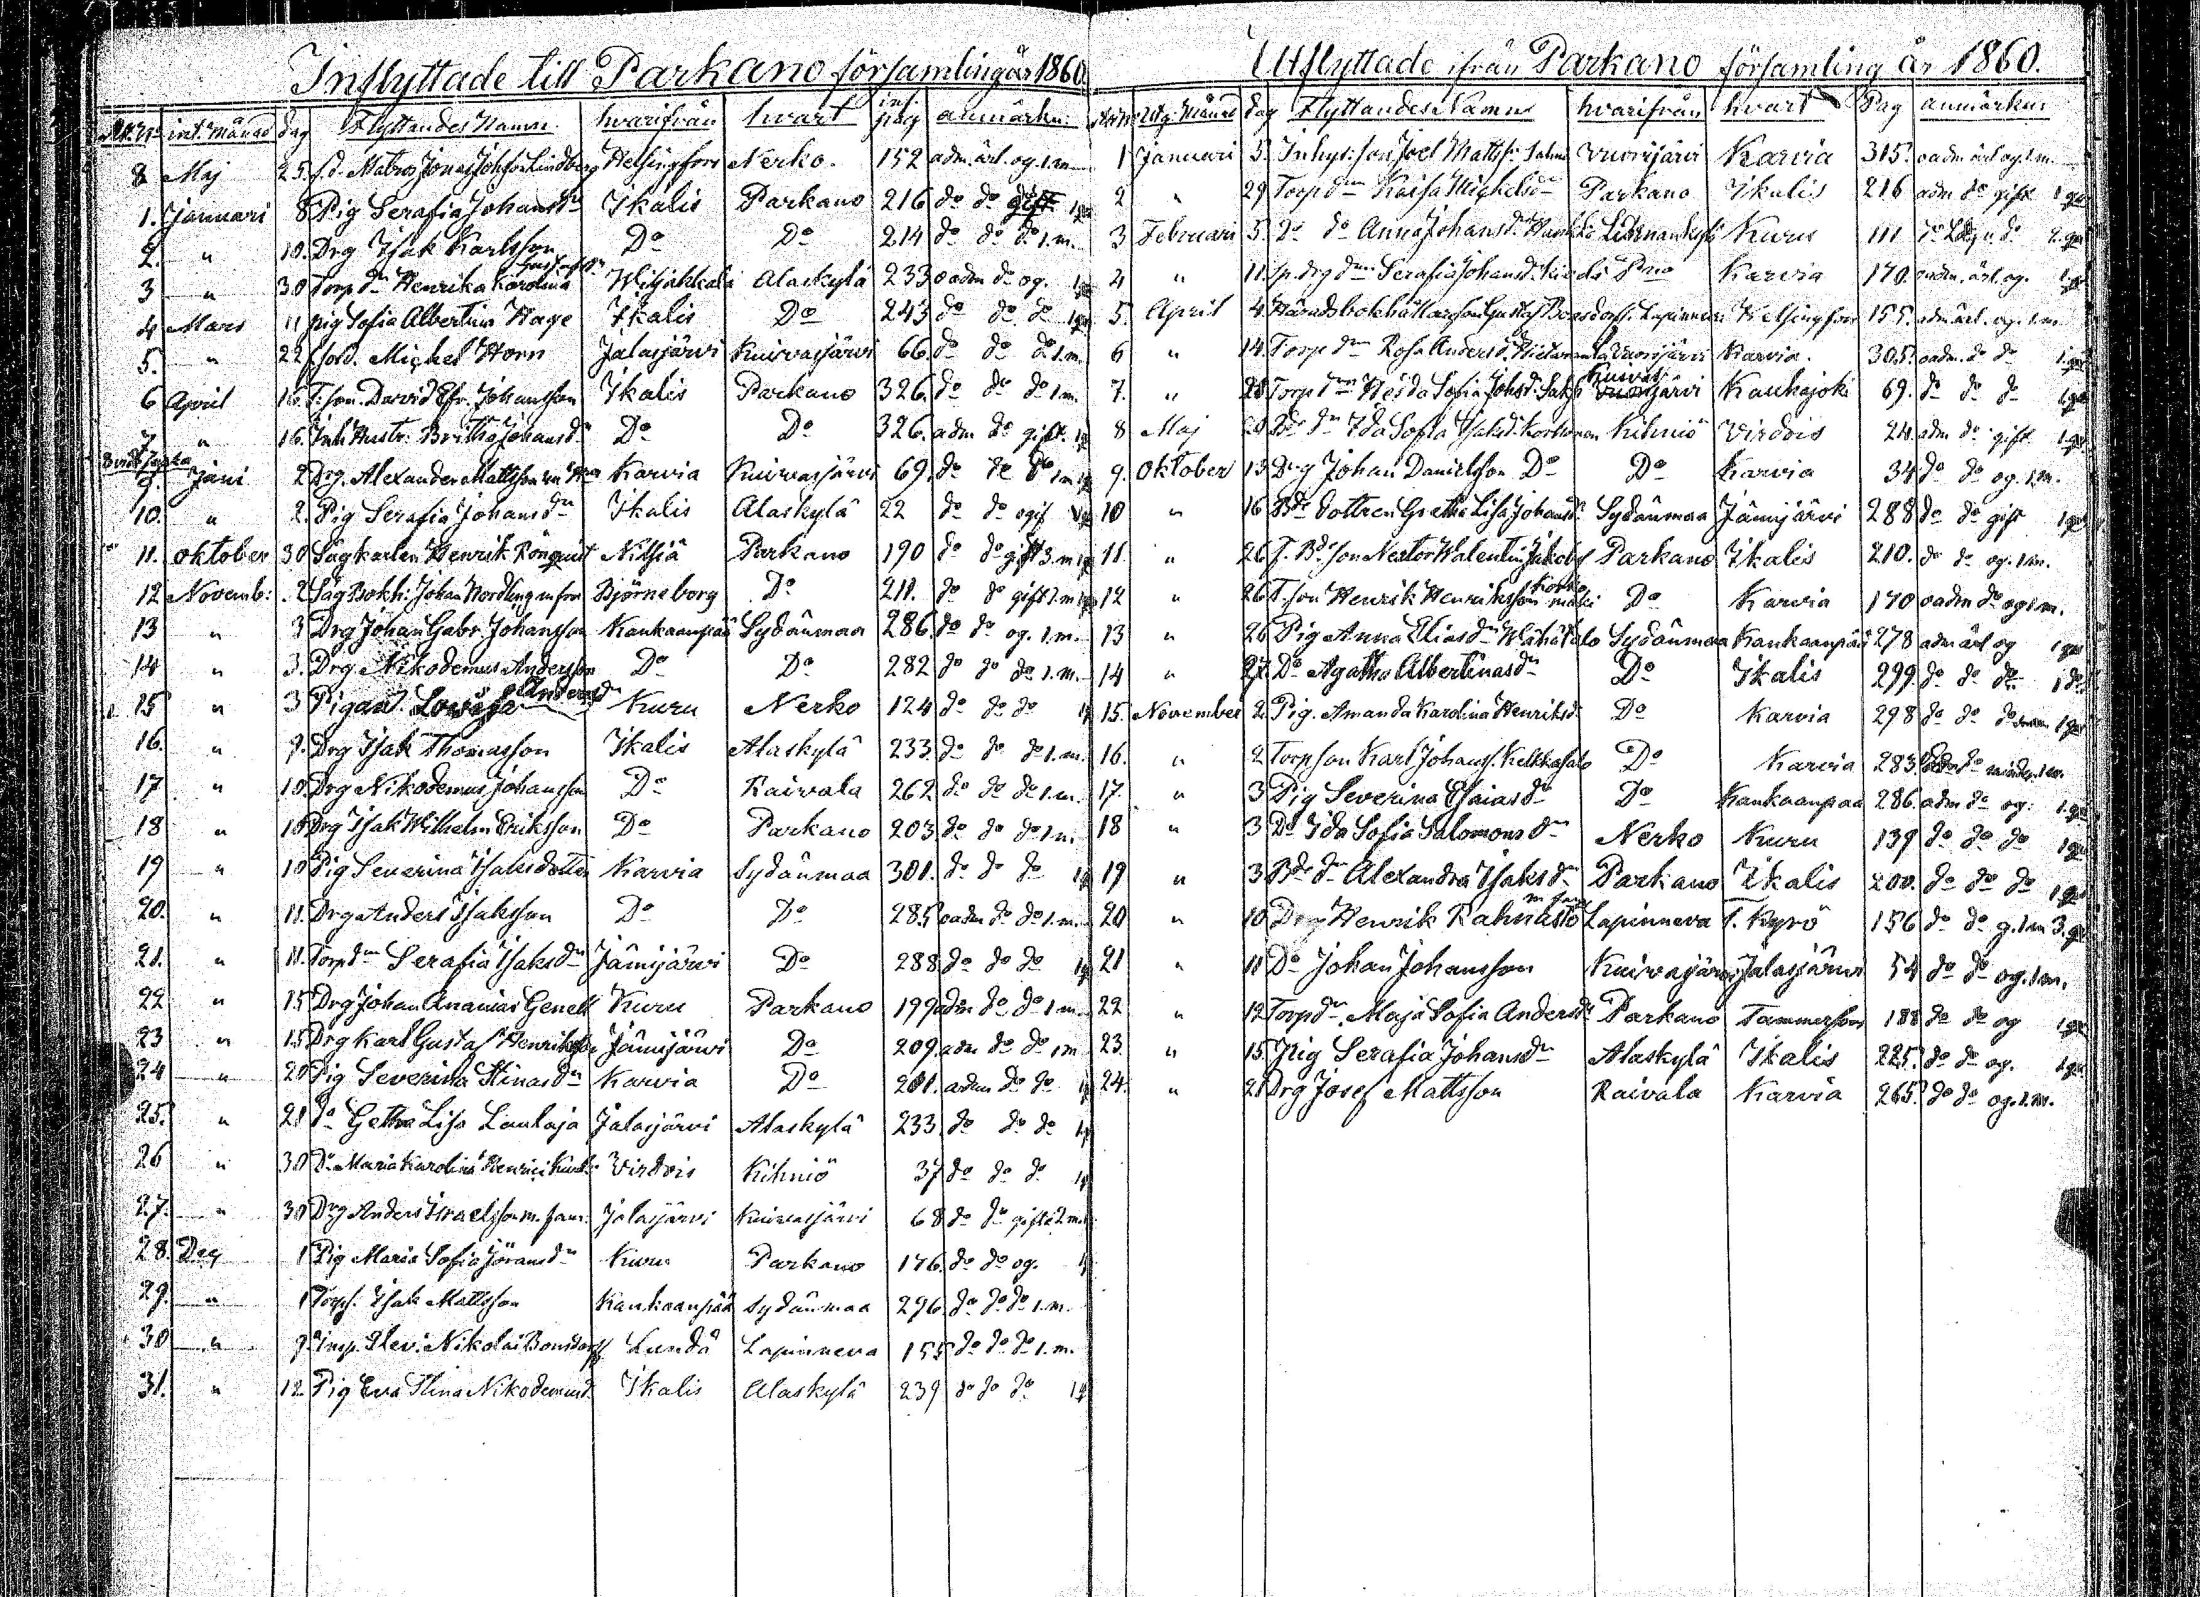 Inflyttade till Parkano församling år 1860.
No inf. Månad dag Flyttandes Namn. hvarifrån hvart inf. pag anmärkn:
8 Maj 25. f.d. Matros Jonas Johsson Lindberg Helsingfors Nerko. 152 adm. ärl. og. 1. m
1. Januari 8 Pig Serafia Johansdr Ikalis Parkano 216 do do gift 1 qv
2. " 10. Drg Isak Karlsson Do Do 214 do do do 1. m.
3 " 30 Torp dr Henrika Karolina Gustafsdr Wiljakkala Alaskylä 233 oadm do og. 1 qv
4 Mars 11 pig Sofia Albertina Hage Ikalis Do 243 do do do 1 qv
5. " 22 Michel Horn Jalasjärvi Kuivasjärvi 66. do do do 1. m.
6 April 16. T. son. David Efr. Johansson Ikalis Parkano 326. do do do 1 m.
7 " 16. Inh Hustr. Britha Johansdr Do Do 326. adm do gift. 1 q
9. Juni 2 Drg. Alexander Mattsson Karvia Kuivasjärvi 69. do do do 1 m 1 q
10. " 2. Pig Serafia Johansdr Ikalis Alaskylä 22 do do ogif 1 q
11. Oktober 30 Sågkarlen Henrik Rönquist Nilsiä Parkano 190 do do gift 3. m 1 q
12 Novemb: 2 Såg Bokh: Johan Nordling m fru Björneborg Do 211. do do gift 1. m 1 q
13 " 3 Drg Johan Gabr. Johansson Kankaanpää Sydänmaa 286 do do og. 1. m.
14 " 3. Drg Nikodemus Andersson Do Do 282 do do do 1. m.
15 " 3 Pigan Lovisa Andersdr Kuru Nerko 124 do do do 1 q
16. " 7. Drg Isak Thomasson Ikalis Alaskylä 233. do do do 1. m.
17 " 10. Drg Nikodemus Johansson Do Raivala 262 do do do 1. m.
18 " 10 Drg Isak Wilhelm Eriksson Do Parkano 203 do do do 1 m.
19 " 10 Pig Severina Isaksdotter Karvia Sydänmaa 301. do do do 1 q
20. " 11. Drg Anders Isaksson Do Do 285 oadm do do 1. m.
21. " 11. Torp dr Serafia Isaksdr Jämijärvi Do 288 do do do 1 q
22 " 15 Drg Johan Ananias Genell Kuru Parkano 199 adm do do 1 m.
23 " 15 Drg Karl Gustaf Henriksson Jämijärvi Do 209. adm do do 1 m
24 " 20 Pig Severina Stinasdr Karvia Do 201. adm do do 1 q
25. " 21 do Getha Lisa Laulaja Jalasjärvi Alaskylä 233 do do do 1 q
26 " 30 Do Maria Karolina Virdois Kihniö 37 do do do 1 q
27. " 30 Drg Anders Israelsson m. fam. Jalasjärvi Kuivasjärvi 68 do do gifta 2 m.
28. Dec 1 Pig Maria Sofia Göransdr Kuru Parkano 176. do do og. 1 q
29. " 1 Torps. Isak Mattsson Kankaanpää Sydänmaa 296. do do do 1. m.
30 " 9. Elev. Nikolai Bonsdorff Lundå Lapinneva 155 do do do 1. m.
31. " 12. Pig Eva Stina Nikodemusd. Ikalis Alaskylä 239 do do do 1 q
Utflyttade ifrån Parkano församling år 1860.
No Utfl. Månad dag Flyttandes Namn hvarifrån hvart Pag anmärkn:
1 Januari 5. Inhys: son Joel Matts. Salmi Vuorijärvi Karvia 315. oadm ärl og. 1. m.
2 " 29 Torp dr Kaisa Michelsdr Parkano Ikalis 216 adm do gift 1 qv
3 Februari 5. Do do Anna Johansd. Kuru 111 do 2. qv
4 " 11. drg dr Serafia Johansd. Karvia 170. oadm. ärl. og. 1 qv
5. April 4. Häradsbokhållar son Gustaf Bonsdorff. Lapinneva Helsingfors 155. adm ärl. og. 1. m.
6 " 14. Torp dr Rosa Andersd. Vuorijärvi Karvia. 305. oadm. do do 1. qv
7. " 28 Torp dr Sofia Kuivasjärvi Kauhajoki 69. do do do 1 qv
8 Maj 20 dr Ida Sofia Isaksd. Korhonen Kihniö Virdois 24. adm do gift 1 qv
9. Oktober 13 Drg Johan Danielsson Do Do Karvia 34 do do og. 1. m.
10 " 16 Bde dottren Gretha Lisa Johansd. Sydänmaa Jämijärvi 288 do do gift 1 qv
11. " 26 T. Bd. son Nestor Walentin Jakobs Parkano Ikalis 210. do do og. 1 m.
12 " 26 T. son Henrik Henriksson Do Karvia 170 oadm do og 1 m.
13 " 26 Pig Anna Eliasdr Wähätalo Sydänmaa Kankaanpää 278 adm ärl og 1 qv
14 " 27. Do Agatha Albertinasdr Do Ikalis 299. do do do 1 do
15. November 2. Pig. Amanda Karolina Henriksd. Do Karvia 298 do do do 1 qv
16. " 2 Torpson Karl Johans. Kelkkasalo Do Karvia 283. do 1 m.
17. " 3 Pig Severina Esaiasdr Do Kankaanpää 286. adm do og: 1. qv
18 " 3 Do Ida Sofia Salomonsdr Nerko Kuru 139 do do do 1 qv
19 " 3 Bde dr Alexandra Isaksdr Parkano Ikalis 200. do do do 1 qv
20 " 10 Drg Henrik Rahnasto m fam Lapinneva T. Kyrö 156 do do g. 1 m 3. qv
21 " 11 Do Johan Johansson Kuivasjärvi Jalasjärvi 54 do do og. 1 m.
22 " 12 Torp dr. Maja Sofia Andersdr Parkano Tammerfors 188 do do og 1 qv
23. " 15. Pig Serafia Johansdr Alaskylä Ikalis 225. do do og. 1 qv
24. " 21 Drg Josef Mattsson Raivala Karvia 265. do do og. 1. m.